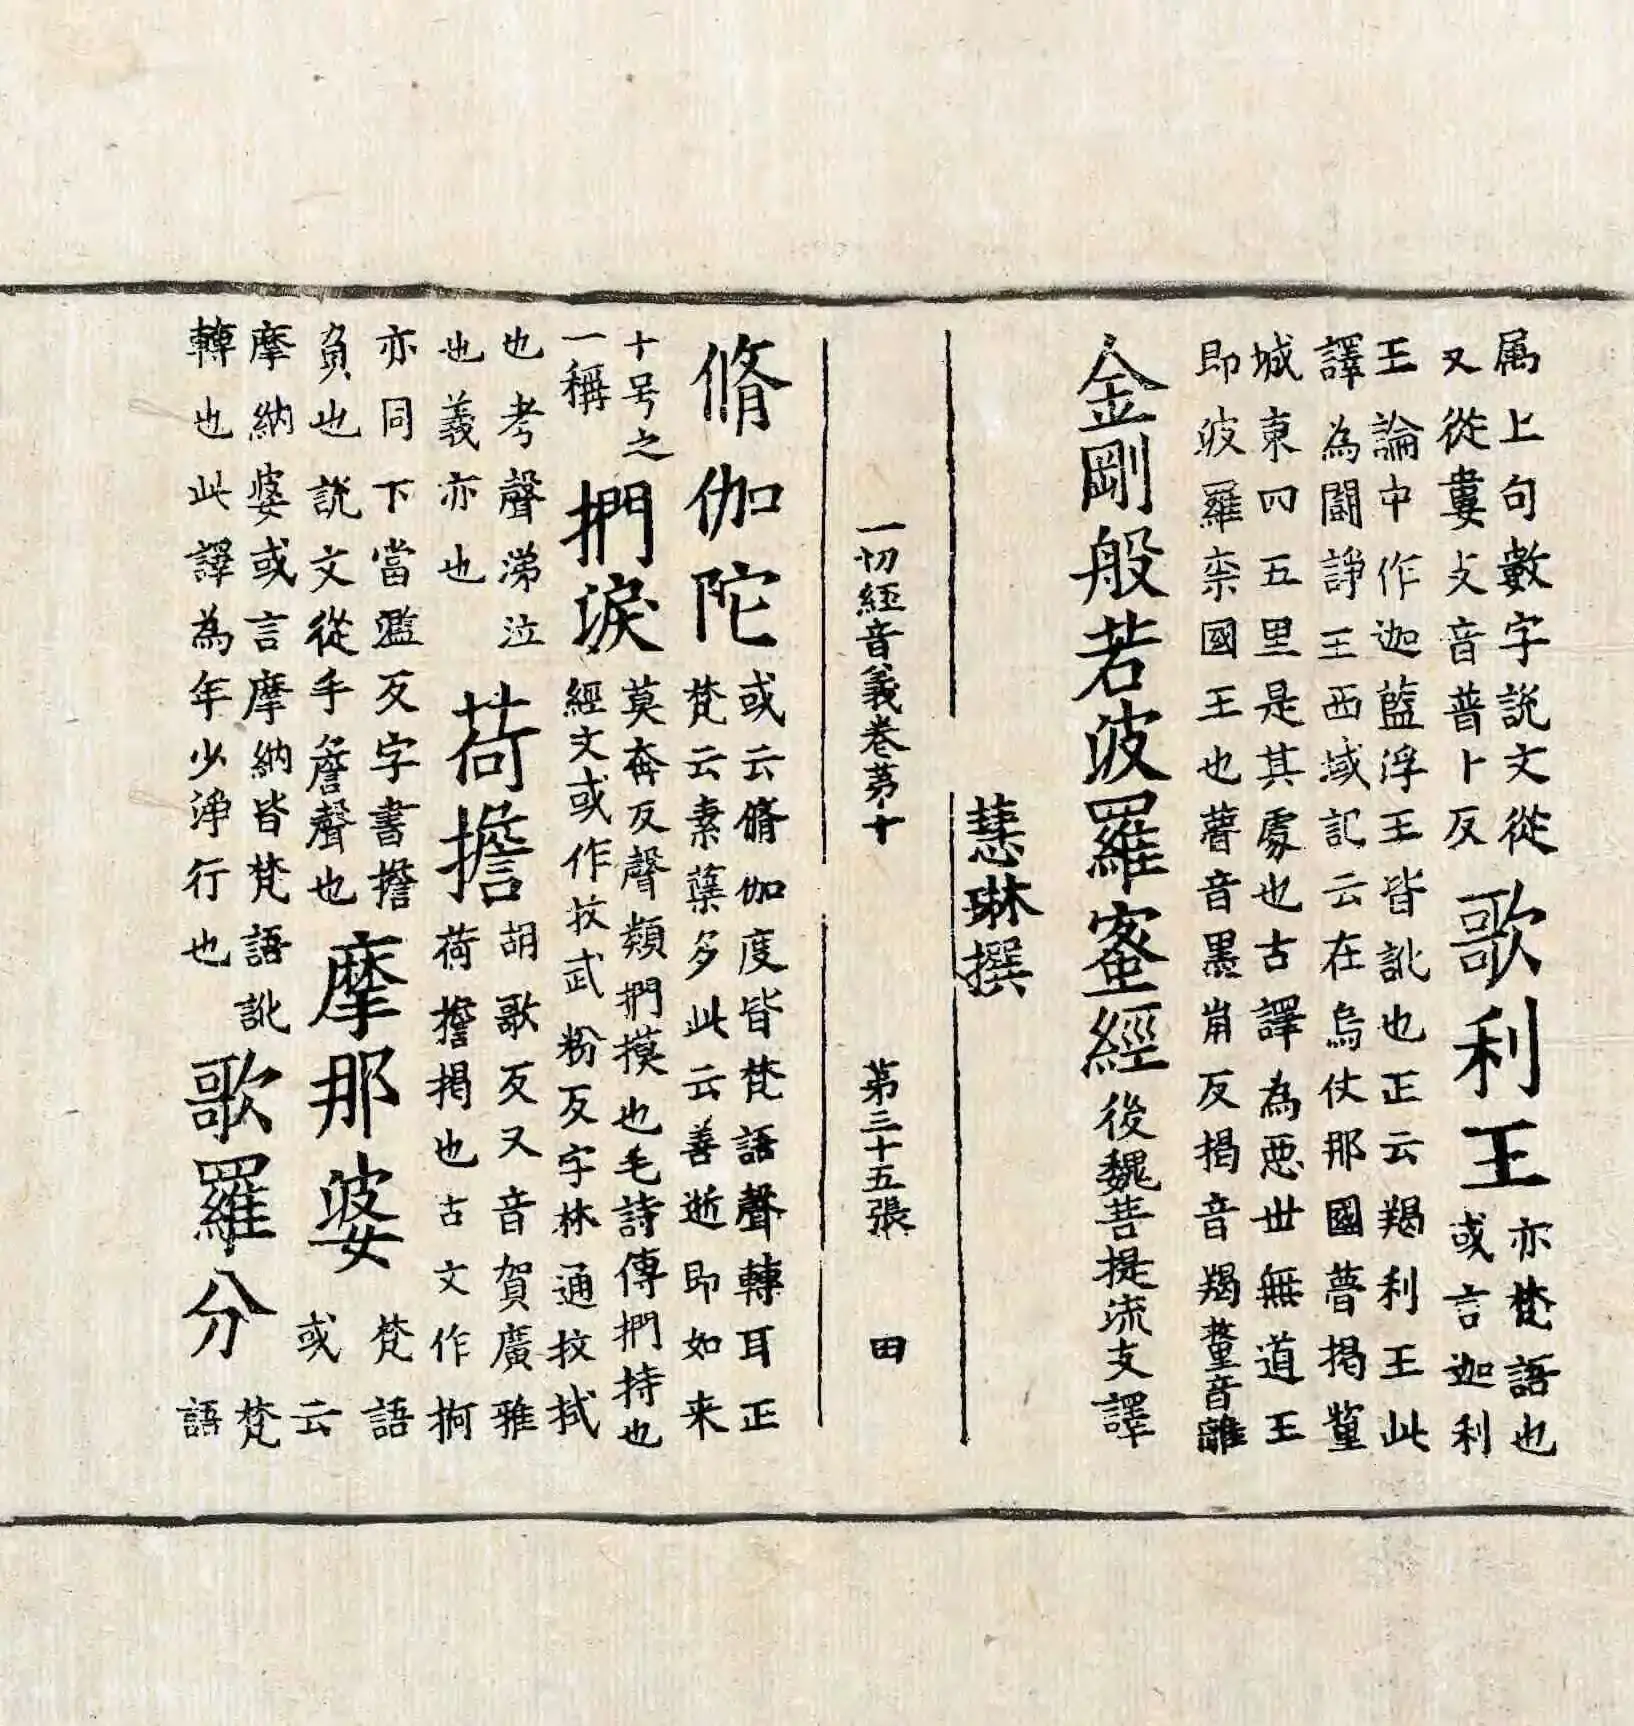 属上句數字說文從
又從婁攴音普卜反
歌利王
亦梵語也
或言迦利
王論中作迦藍浮王皆訛也正云羯利王此
譯為鬪諍王西域記云在烏仗那國瞢揭釐
城東四五里是其處也古譯為惡世無道王
即波羅柰國王也瞢音墨崩反揭音羯釐音離
金剛般若波羅蜜經
後魏菩提流支譯
慧琳撰
一切經音義卷苐十 第三十五張 田
脩伽陀
或云脩伽度皆梵語聲轉耳正
梵云素蘖多此云善逝即如来
十号之
一稱
捫淚
莫奔反聲類捫摸也毛詩傳捫持也
經文或作抆武粉反字林通抆拭
也考聲涕泣
也義亦也
荷擔
胡歌反又音賀廣雅
荷擔揭也古文作抲
亦同下當濫反字書擔
負也說文從手詹聲也
摩那婆
梵語
或云
摩納婆或言摩納皆梵語訛
轉也此譯為年少淨行也
歌羅分
梵
語